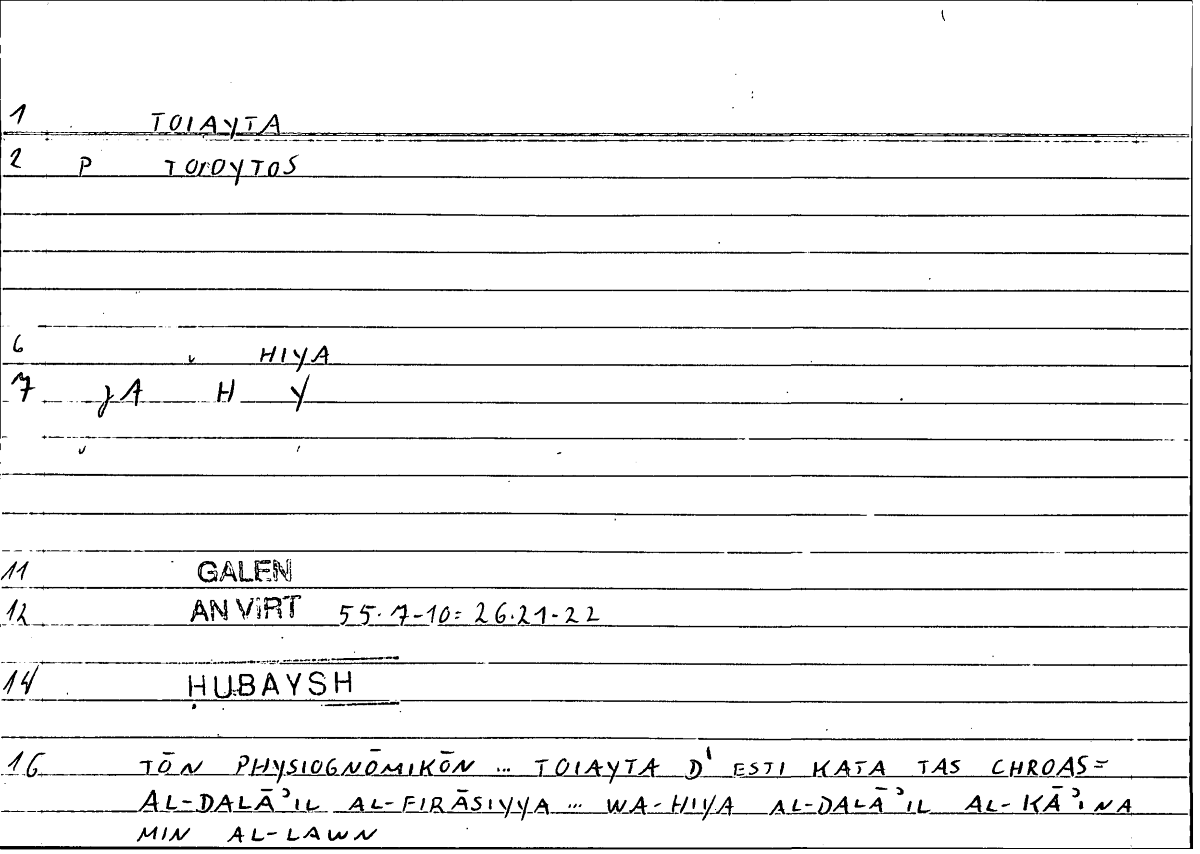 1 TOIAYTA
2 P TOIOYTOS
6 HIYA
7 jA H Y
11 GALEN
12 AN VIRT 55.7-10=26.21-22
14 ḤUBAYSH
16 TŌN PHYSIOGNŌMIKŌN ... TOIAYTA D' ESTI KATA TAS CHROAS=
AL-DALĀʾIL AL-FIRĀSIYYA ... WA-HIYA AL-DALĀʾIL AL-KĀʾINA
MIN AL-LAWN